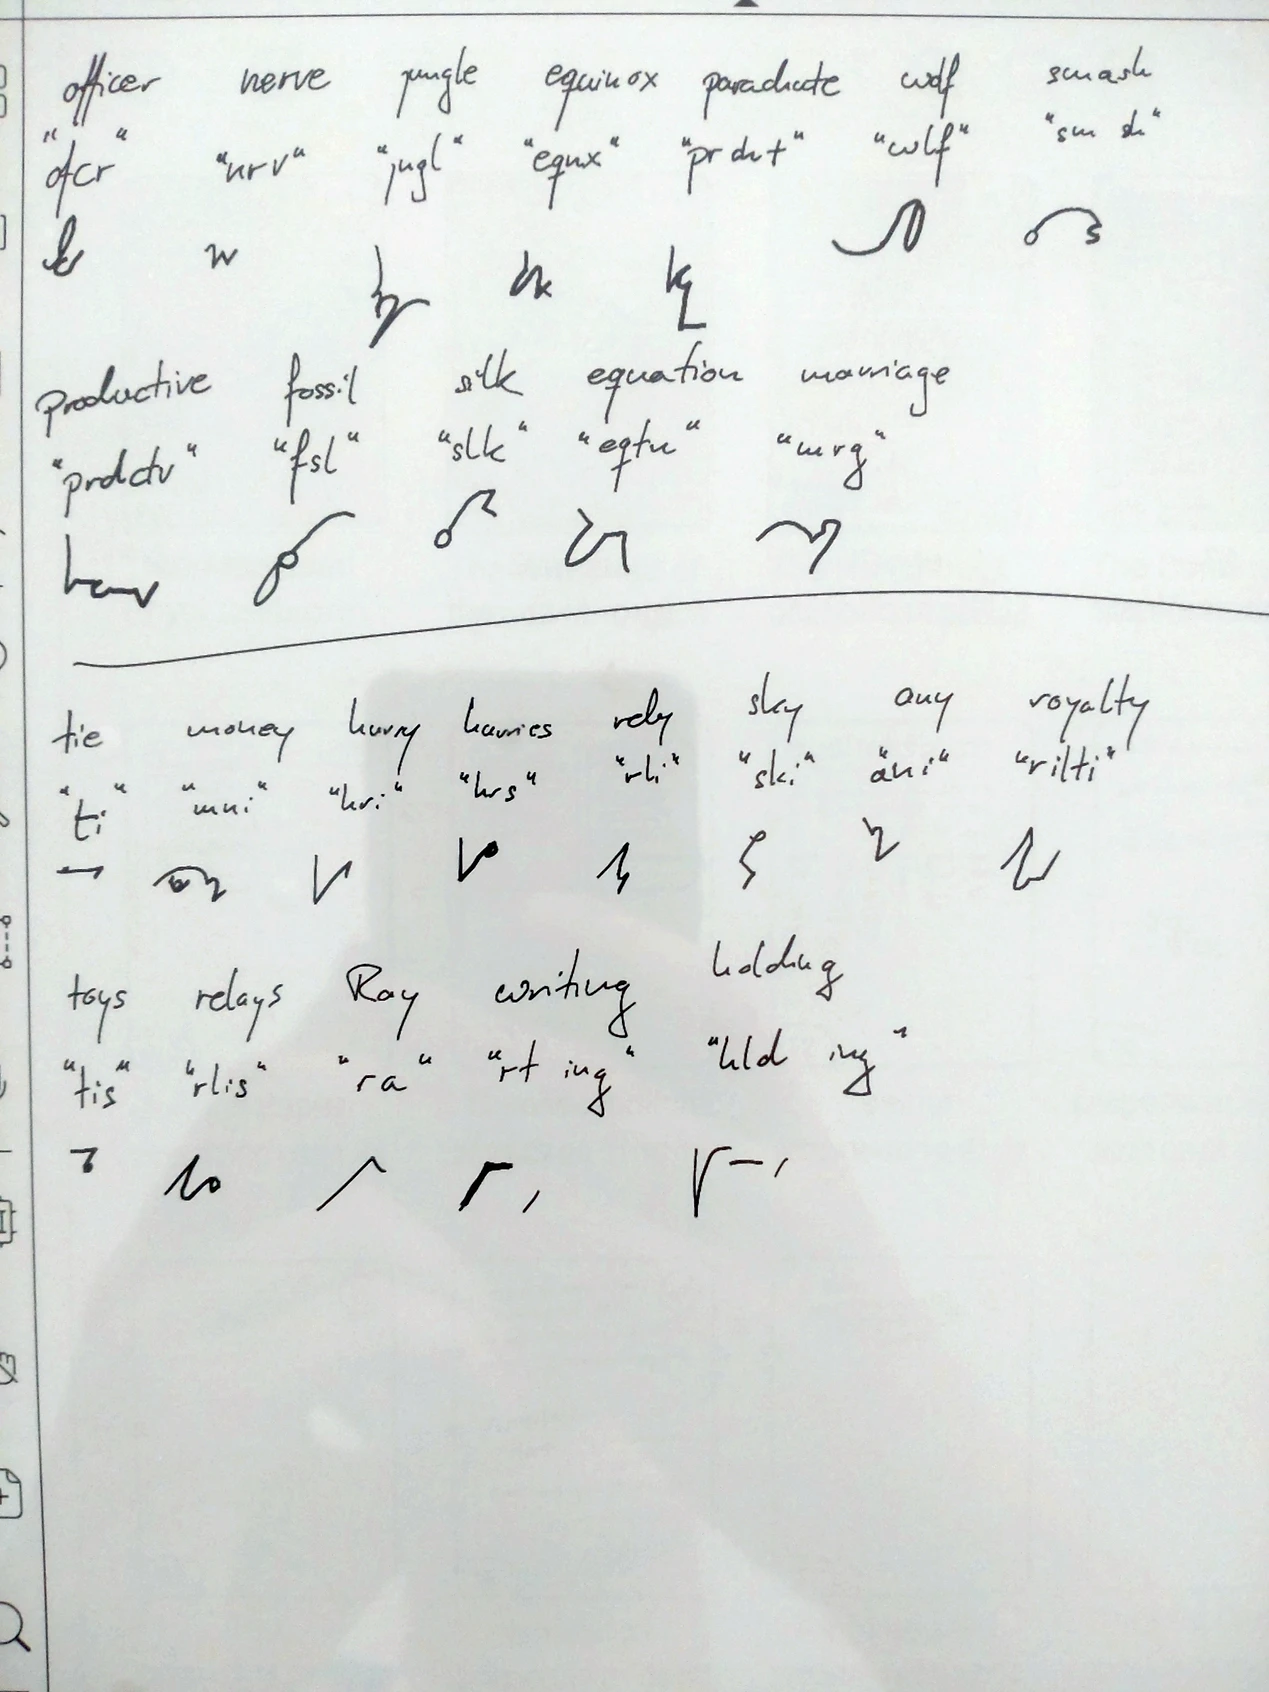 officer nerve jungle equinox parachute wolf smash
"ofcr" "nrv" "jngl" "eqnx" "prcht" "wlf" "sm sh"
productive fossil silk equation marriage
"prdctv" "fsl" "slk" "eqtn" "mrg"
tie money hurry hurries rely sky any royalty
"ti" "mni" "hri" "hrs" "rli" "ski" "ani" "rilti"
toys relays Ray writing holding
"tis" "rlis" "ra" "rt ing" "hld ing"